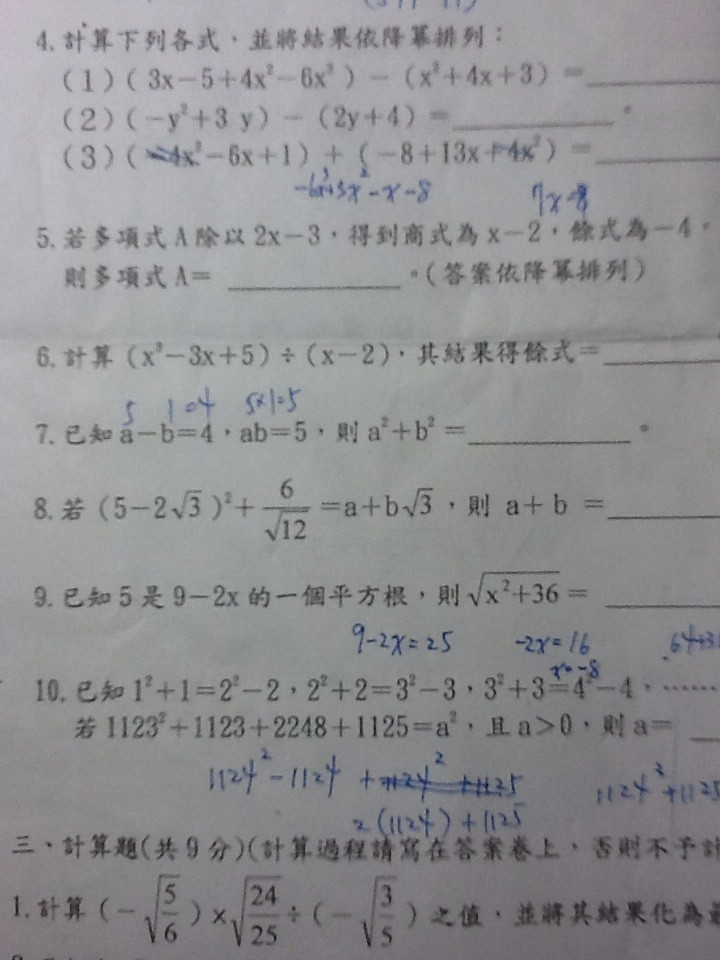 4. 計算下列各式，並將結果依降冪排列：
(1) ( 3x－5＋4x²－6x³ ) － (x²＋4x＋3) ＝
(2) (－y²＋3 y) － (2y＋4)＝ 。
(3) ( －6x＋1) ＋ ( －8＋13x＋4x² ) ＝
-6x³+3x²-x-8 7x-8
5. 若多項式 A 除以 2x－3，得到商式為 x－2，餘式為－4，
則多項式 A＝ 。(答案依降冪排列)
6. 計算 (x³－3x＋5) ÷ (x－2)，其結果得餘式＝
5 1 =4 5×1=5
7. 已知 a－b＝4，ab＝5，則 a²＋b² ＝ 。
8. 若 (5－2√3 )²＋ 6/√12 ＝a＋b√3，則 a＋b ＝
9. 已知 5 是 9－2x 的一個平方根，則 √x²＋36 ＝
9-2x=25 -2x=16 64+3
x=-8
10. 已知 1²＋1＝2²－2，2²＋2＝3²－3，3²＋3＝4²－4，……
若 1123²＋1123＋2248＋1125＝a²，且 a＞0，則 a＝
1124²-1124 + 1124²+1125
2(1124)+1125
三、計算題(共 9 分)(計算過程請寫在答案卷上，否則不予計
1. 計算 (－√5/6 ) × √24/25 ÷ (－√3/5 ) 之值，並將其結果化為最